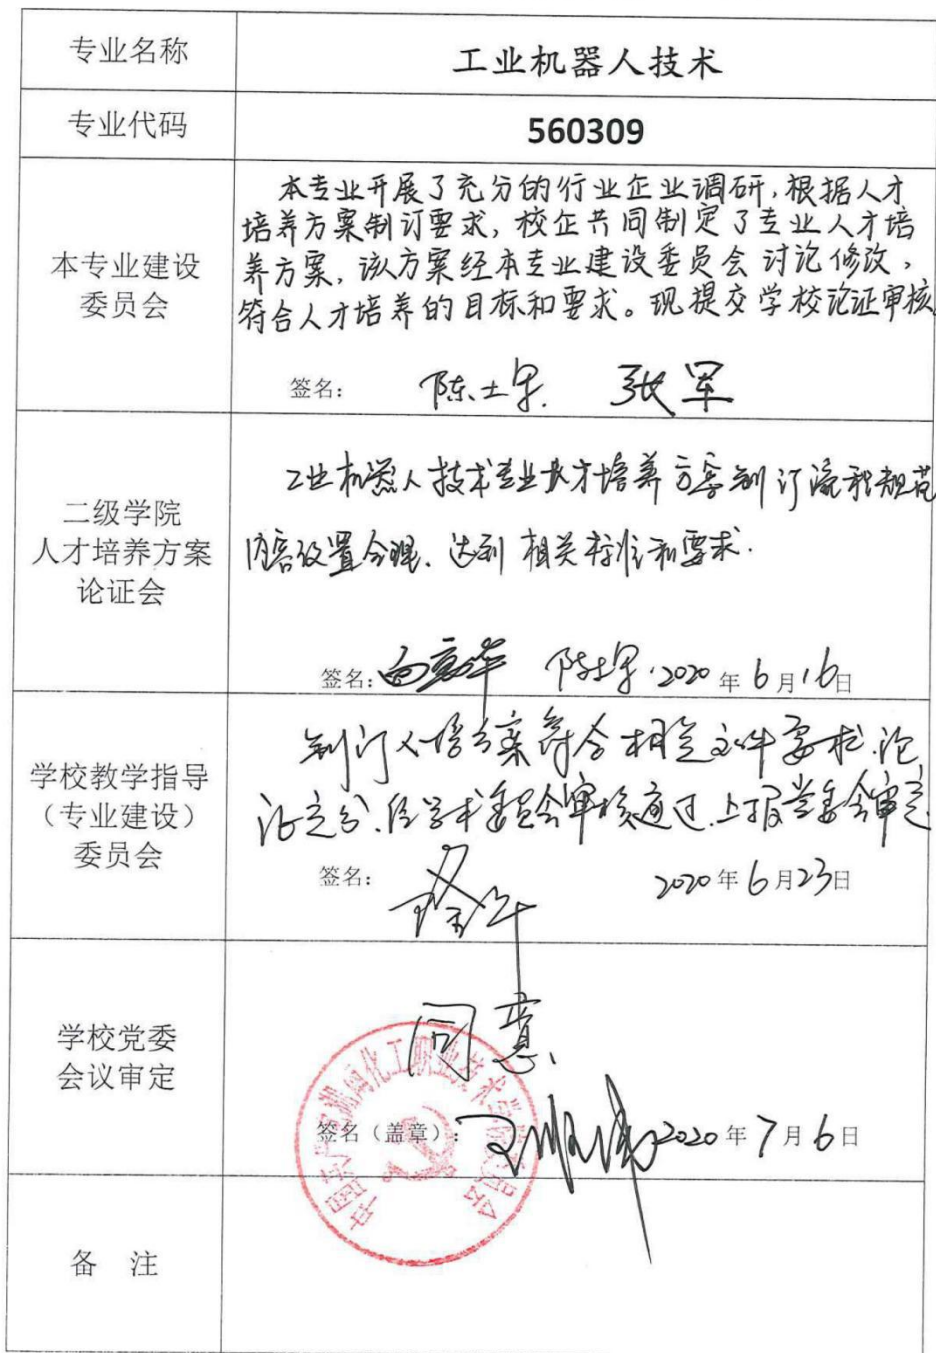 专业名称
工业机器人技术
专业代码
560309
本专业建设
委员会
本专业开展了充分的行业企业调研,根据人才
培养方案制订要求,校企共同制定了专业人才培
养方案,该方案经本专业建设委员会讨论修改,
符合人才培养的目标和要求。现提交学校论证审核
签名: 张军
二级学院
人才培养方案
论证会
工业机器人技术专业人才培养方案制订流程规范
内容设置合理、达到相关标准和要求.
签名: 2020年6月16日
学校教学指导
(专业建设)
委员会
制订人培方案符合相关文件要求,论
证充分,经学术委员会审核通过,上报党委会审定
签名: 2020年6月23日
学校党委
会议审定
同意
签名(盖章): 2020年7月6日
中国共产党湖南化工职业技术学院委员会
备 注